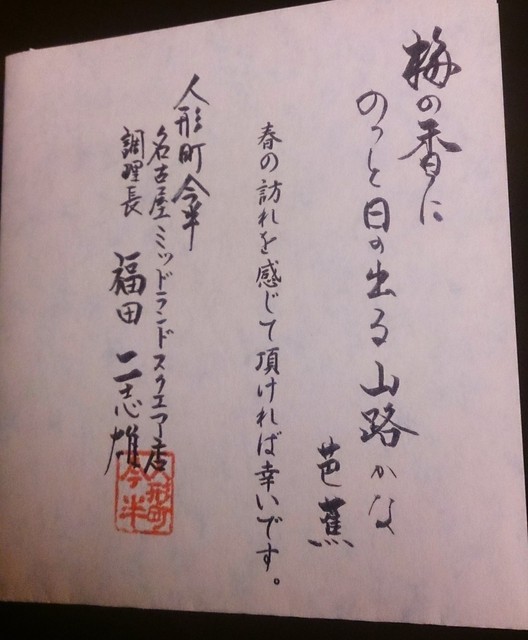 梅の香に
のっと日の出る山路かな
芭蕉
春の訪れを感じて頂ければ幸いです。
人形町今半
名古屋ミッドランドスクエア店
調理長 福田 二志雄
人形町
今半